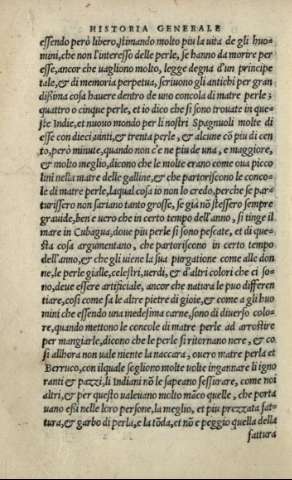 HISTORIA GENERALE
essendo però libero, stimando molto piu la uita de gli huo-
mini, che non l'interesso delle perle, se hanno da morire per
esse, ancor che uagliono molto, legge degna d'un principe
tale, & di memoria perpetua, scriuono gli antichi per gran
dissima cosa hauere dentro de uno concola di matre perle 3
quattro o cinque perle, et io dico che si sono trouate in que-
ste Indie, et nuouo mondo per li nostri Spagnuoli molte di
esse con dieci, uinti, & trenta perle, & alcune cō piu di cen
to, però minute, quando non c'e ne piu de una, e maggiore,
& molto meglio, dicono che le molte erano come oua picco
lini nella matre delle galline, & che partoriscono le conco-
le di matre perle, laqual cosa io non lo credo, perche se par-
turissero non sariano tanto grosse, se già nō stessero sempre
grauide, ben e uero che in certo tempo dell'anno, si tinge il
mare in Cubagua, doue piu perle si sono pescate, et di que-
sta cosa argumentano, che partoriscono in certo tempo
dell'anno, & che gli uiene la sua purgatione come alle don
ne, le perle gialle, celestri, uerdi, & d'altri colori che ci so-
no, deue essere artificiale, ancor che natura le puo differen
tiare, così come fa le altre pietre di gioie, & come a gli huo
mini che essendo una medesima carne, sono di diuerso colo-
re, quando mettono le concole di matre perle ad arrostire
per mangiarle, dicono che le perle si ritornano nere, & co
si allhora non uale niente la naccara, ouero matre perla et
Berruco, con ilquale segliono molte uolte ingannare li igno
ranti & pazzi, li Indiani nō le sapeano fessurare, come noi
altri, & per questo ualeuano molto māco quelle, che porta
uano essi nelle loro persone, la meglio, et piu prezzata fat-
tura, & garbo di perla, e la tōda, et nō e peggio quella della
fattura